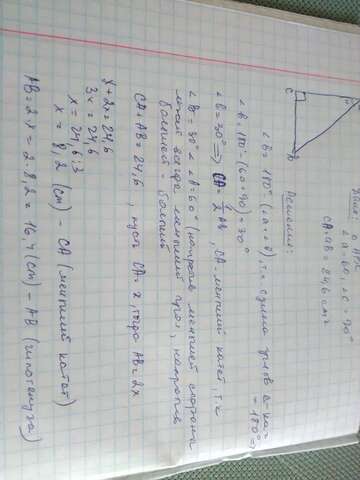 Дано: △ABC
∠A=60°, ∠C=90°
CA+AB=24,6 см
Решение:
∠B=180°-(∠A+∠C), т.к. сумма углов
=180° ⇒
∠B=180°-(60+90)=30°
∠B=30° ⇒ CA=½AB, CA-меньший катет, т.к
∠B=30° < ∠A=60° (напротив меньшей стороны
лежит всегда меньший угол, напротив
большей - больший
CA+AB=24,6, пусть CA=x, тогда AB=2x
x+2x=24,6
3x=24,6
x=24,6:3
x=8,2 (см) - CA (меньший катет)
AB=2x=2·8,2=16,4 (см) - AB (гипотенуза)
A
C
B